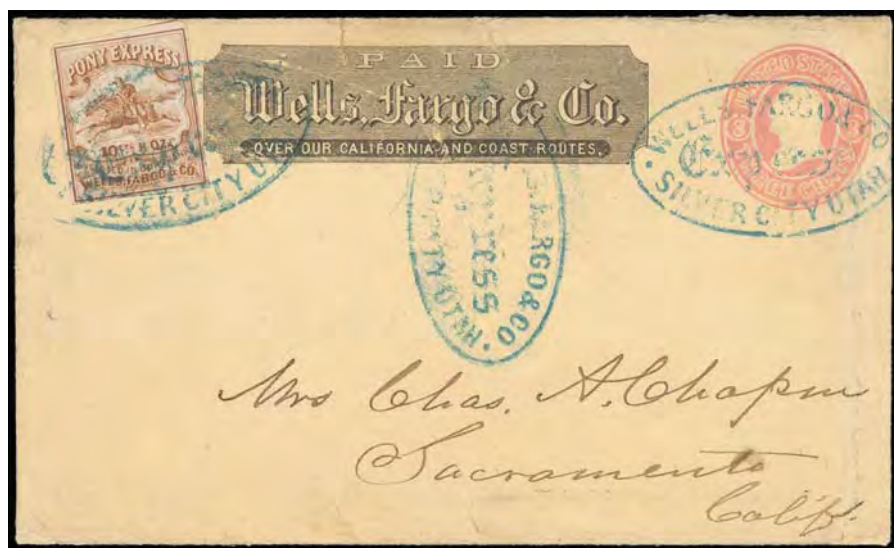 PONY EXPRESS
WELLS, FARGO & CO.
SILVER CITY U
PAID
Wells, Fargo & Co.
OVER OUR CALIFORNIA AND COAST ROUTES.
UNITED STATES
WELLS FARGO & CO
EXPRESS
SILVER CITY UTAH
FARGO & CO
RESS
TY UTAH
Mrs Chas. A. Chapin
Sacramento
Calif.